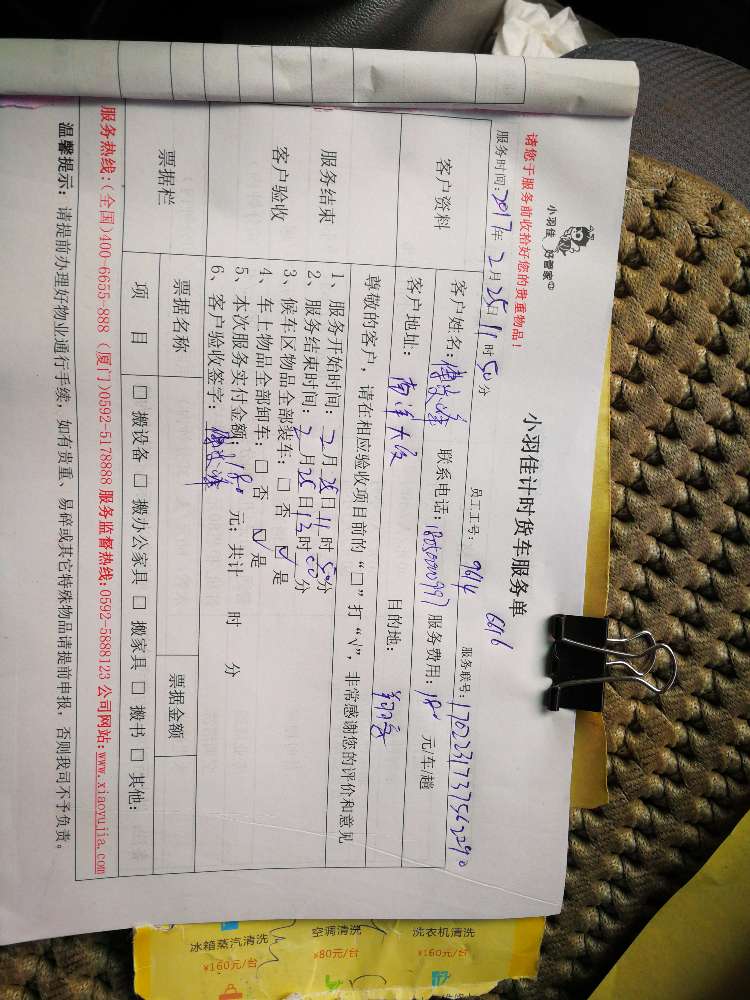 小羽佳 好管家
小羽佳计时货车服务单
请您于服务前收拾好您的贵重物品！
服务时间：2017年2月25日11时50分 员工工号：9614 6916 服务联号：
客户资料
客户姓名： 联系电话： 服务费用：180元/车/趟
客户地址：南洋大厦 目的地：
尊敬的客户，请在相应验收项目前的“□”打“√”，非常感谢您的评价和意见
服务结束
客户验收
1、服务开始时间：2月25日11时50分
2、服务结束时间：2月25日13时00分
3、候车区物品全部装车：□ 否 ☑ 是
4、车上物品全部卸车：□ 否 ☑ 是
5、本次服务实付金额：180元；共计 时 分
6、客户验收签字：
票据栏
票据名称 票据金额
项 目 □ 搬设备 □ 搬办公家具 □ 搬家具 □ 搬书 □ 其他：
服务热线：（全国）400-6655-888（厦门）0592-5178888 服务监督热线：0592-5888123 公司网站：www.xiaoyujia.com
温馨提示：请提前办理好物业通行手续，如有贵重、易碎或其它特殊物品请提前申报，否则我司不予负责。
冰箱蒸汽清洗 空调清洗 洗衣机清洗
¥160元/台 ¥80元/台 ¥160元/台